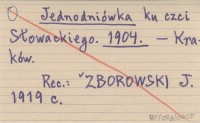 Jednodniówka ku czci
Słowackiego. 1904. — Kra-
ków.
Rec.: ZBOROWSKI J.
1919 c.